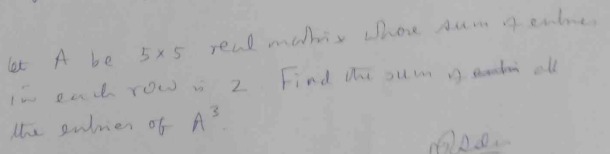 let A be 5x5 real matrix whose sum of entries
in each row is 2 Find the sum of all
the entries of A³.